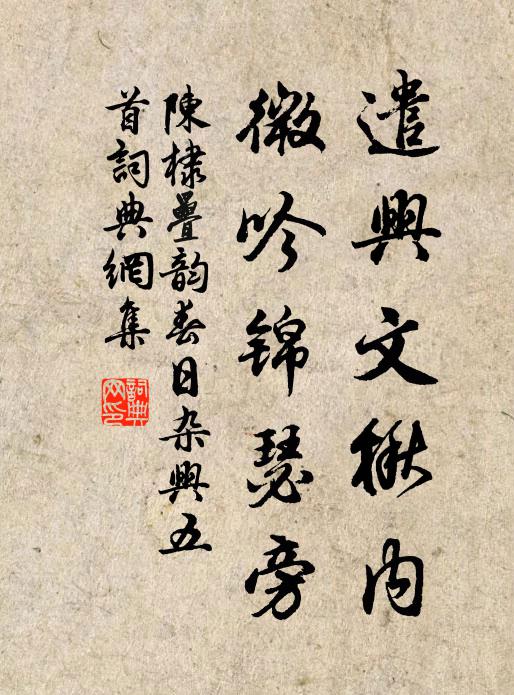 遣興文楸內
微吟錦瑟旁
陳棣疊韵春日杂興五
首詞典網集
詞典
网印